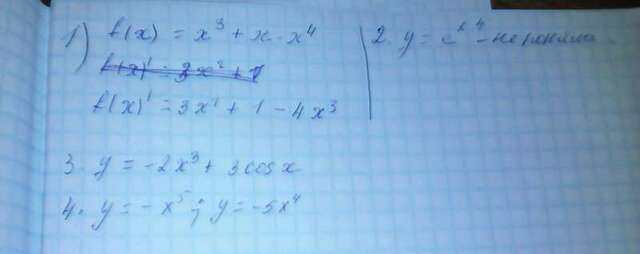 1) f(x) = x³ + x - x⁴
f(x)' = 3x² + 1
f(x)' = 3x² + 1 - 4x³
2. y = eˣ⁴ - не поняла
3. y = -2x³ + 3cosx
4. y = -x⁵; y = -5x⁴